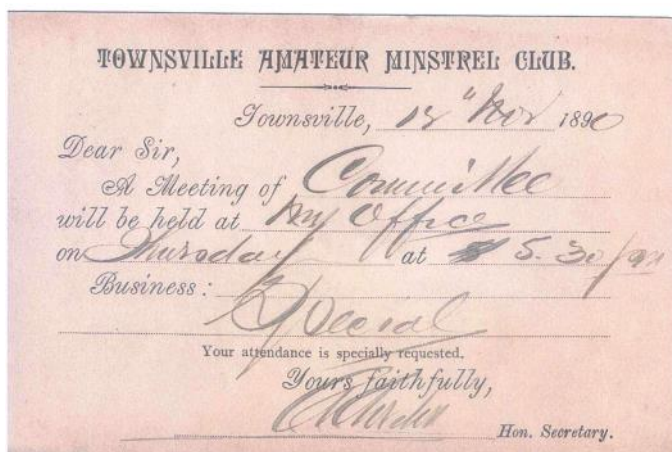 TOWNSVILLE AMATEUR MINSTREL CLUB.
Townsville, Nov 1890
Dear Sir,
A Meeting of Committee
will be held at my Office
on Thursday at 5.30 pm
Business :
Special
Your attendance is specially requested.
Yours faithfully,
Hon. Secretary.